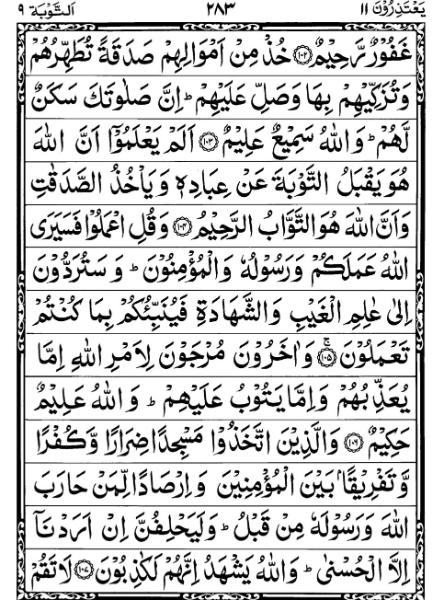 يَعْتَذِرُوْنَ ١١ ٢٨٣ اَلتَّوْبَة ٩
غَفُوْرٌ رَّحِيْمٌ ﴿١٠٢﴾ خُذْ مِنْ اَمْوَالِهِمْ صَدَقَةً تُطَهِّرُهُمْ
وَتُزَكِّيْهِمْ بِهَا وَصَلِّ عَلَيْهِمْ ؕ اِنَّ صَلٰوتَكَ سَكَنٌ
لَّهُمْ ؕ وَاللّٰهُ سَمِيْعٌ عَلِيْمٌ ﴿١٠٣﴾ اَلَمْ يَعْلَمُوْۤا اَنَّ اللّٰهَ
هُوَ يَقْبَلُ التَّوْبَةَ عَنْ عِبَادِهٖ وَيَاْخُذُ الصَّدَقٰتِ
وَاَنَّ اللّٰهَ هُوَ التَّوَّابُ الرَّحِيْمُ ﴿١٠٤﴾ وَقُلِ اعْمَلُوْا فَسَيَرَى
اللّٰهُ عَمَلَكُمْ وَرَسُوْلُهٗ وَالْمُؤْمِنُوْنَ ؕ وَسَتُرَدُّوْنَ
اِلٰى عٰلِمِ الْغَيْبِ وَالشَّهَادَةِ فَيُنَبِّئُكُمْ بِمَا كُنْتُمْ
تَعْمَلُوْنَ ﴿١٠٥﴾ وَاٰخَرُوْنَ مُرْجَوْنَ لِاَمْرِ اللّٰهِ اِمَّا
يُعَذِّبُهُمْ وَاِمَّا يَتُوْبُ عَلَيْهِمْ ؕ وَاللّٰهُ عَلِيْمٌ
حَكِيْمٌ ﴿١٠٦﴾ وَالَّذِيْنَ اتَّخَذُوْا مَسْجِدًا ضِرَارًا وَّكُفْرًا
وَّتَفْرِيْقًۢا بَيْنَ الْمُؤْمِنِيْنَ وَاِرْصَادًا لِّمَنْ حَارَبَ
اللّٰهَ وَرَسُوْلَهٗ مِنْ قَبْلُ ؕ وَلَيَحْلِفُنَّ اِنْ اَرَدْنَاۤ
اِلَّا الْحُسْنٰى ؕ وَاللّٰهُ يَشْهَدُ اِنَّهُمْ لَكٰذِبُوْنَ ﴿١٠٧﴾ لَا تَقُمْ